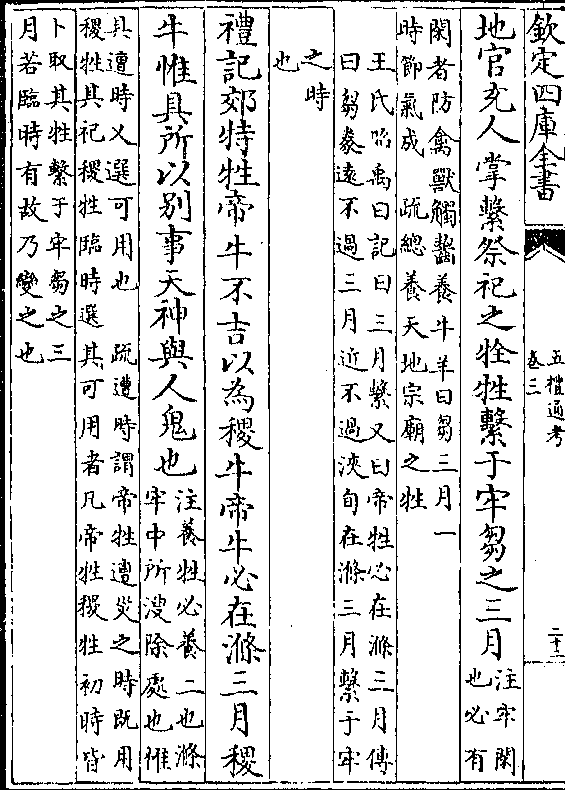 欽定四庫全書
五禮通考
卷三
二十二
地官充人掌繫祭祀之牷牲繫于牢芻之三月
注牢閑
也必有
閑者防禽獸觸齧養牛羊曰芻三月一
時節氣成 疏總養天地宗廟之牲
王氏昭禹曰記曰三月繫又曰帝牲必在滌三月傳
曰芻豢遠不過三月近不過浹旬在滌三月繫于牢
之時
也
禮記郊特牲帝牛不吉以為稷牛帝牛必在滌三月稷
牛惟具所以别事天神與人鬼也
注養牲必養二也滌
牢中所溲除處也惟
具遭時又選可用也 疏遭時謂帝牲遭災之時既用
稷牲其祀稷牲臨時選其可用者凡帝牲稷牲初時皆
卜取其牲繫于牢芻之三
月若臨時有故乃變之也